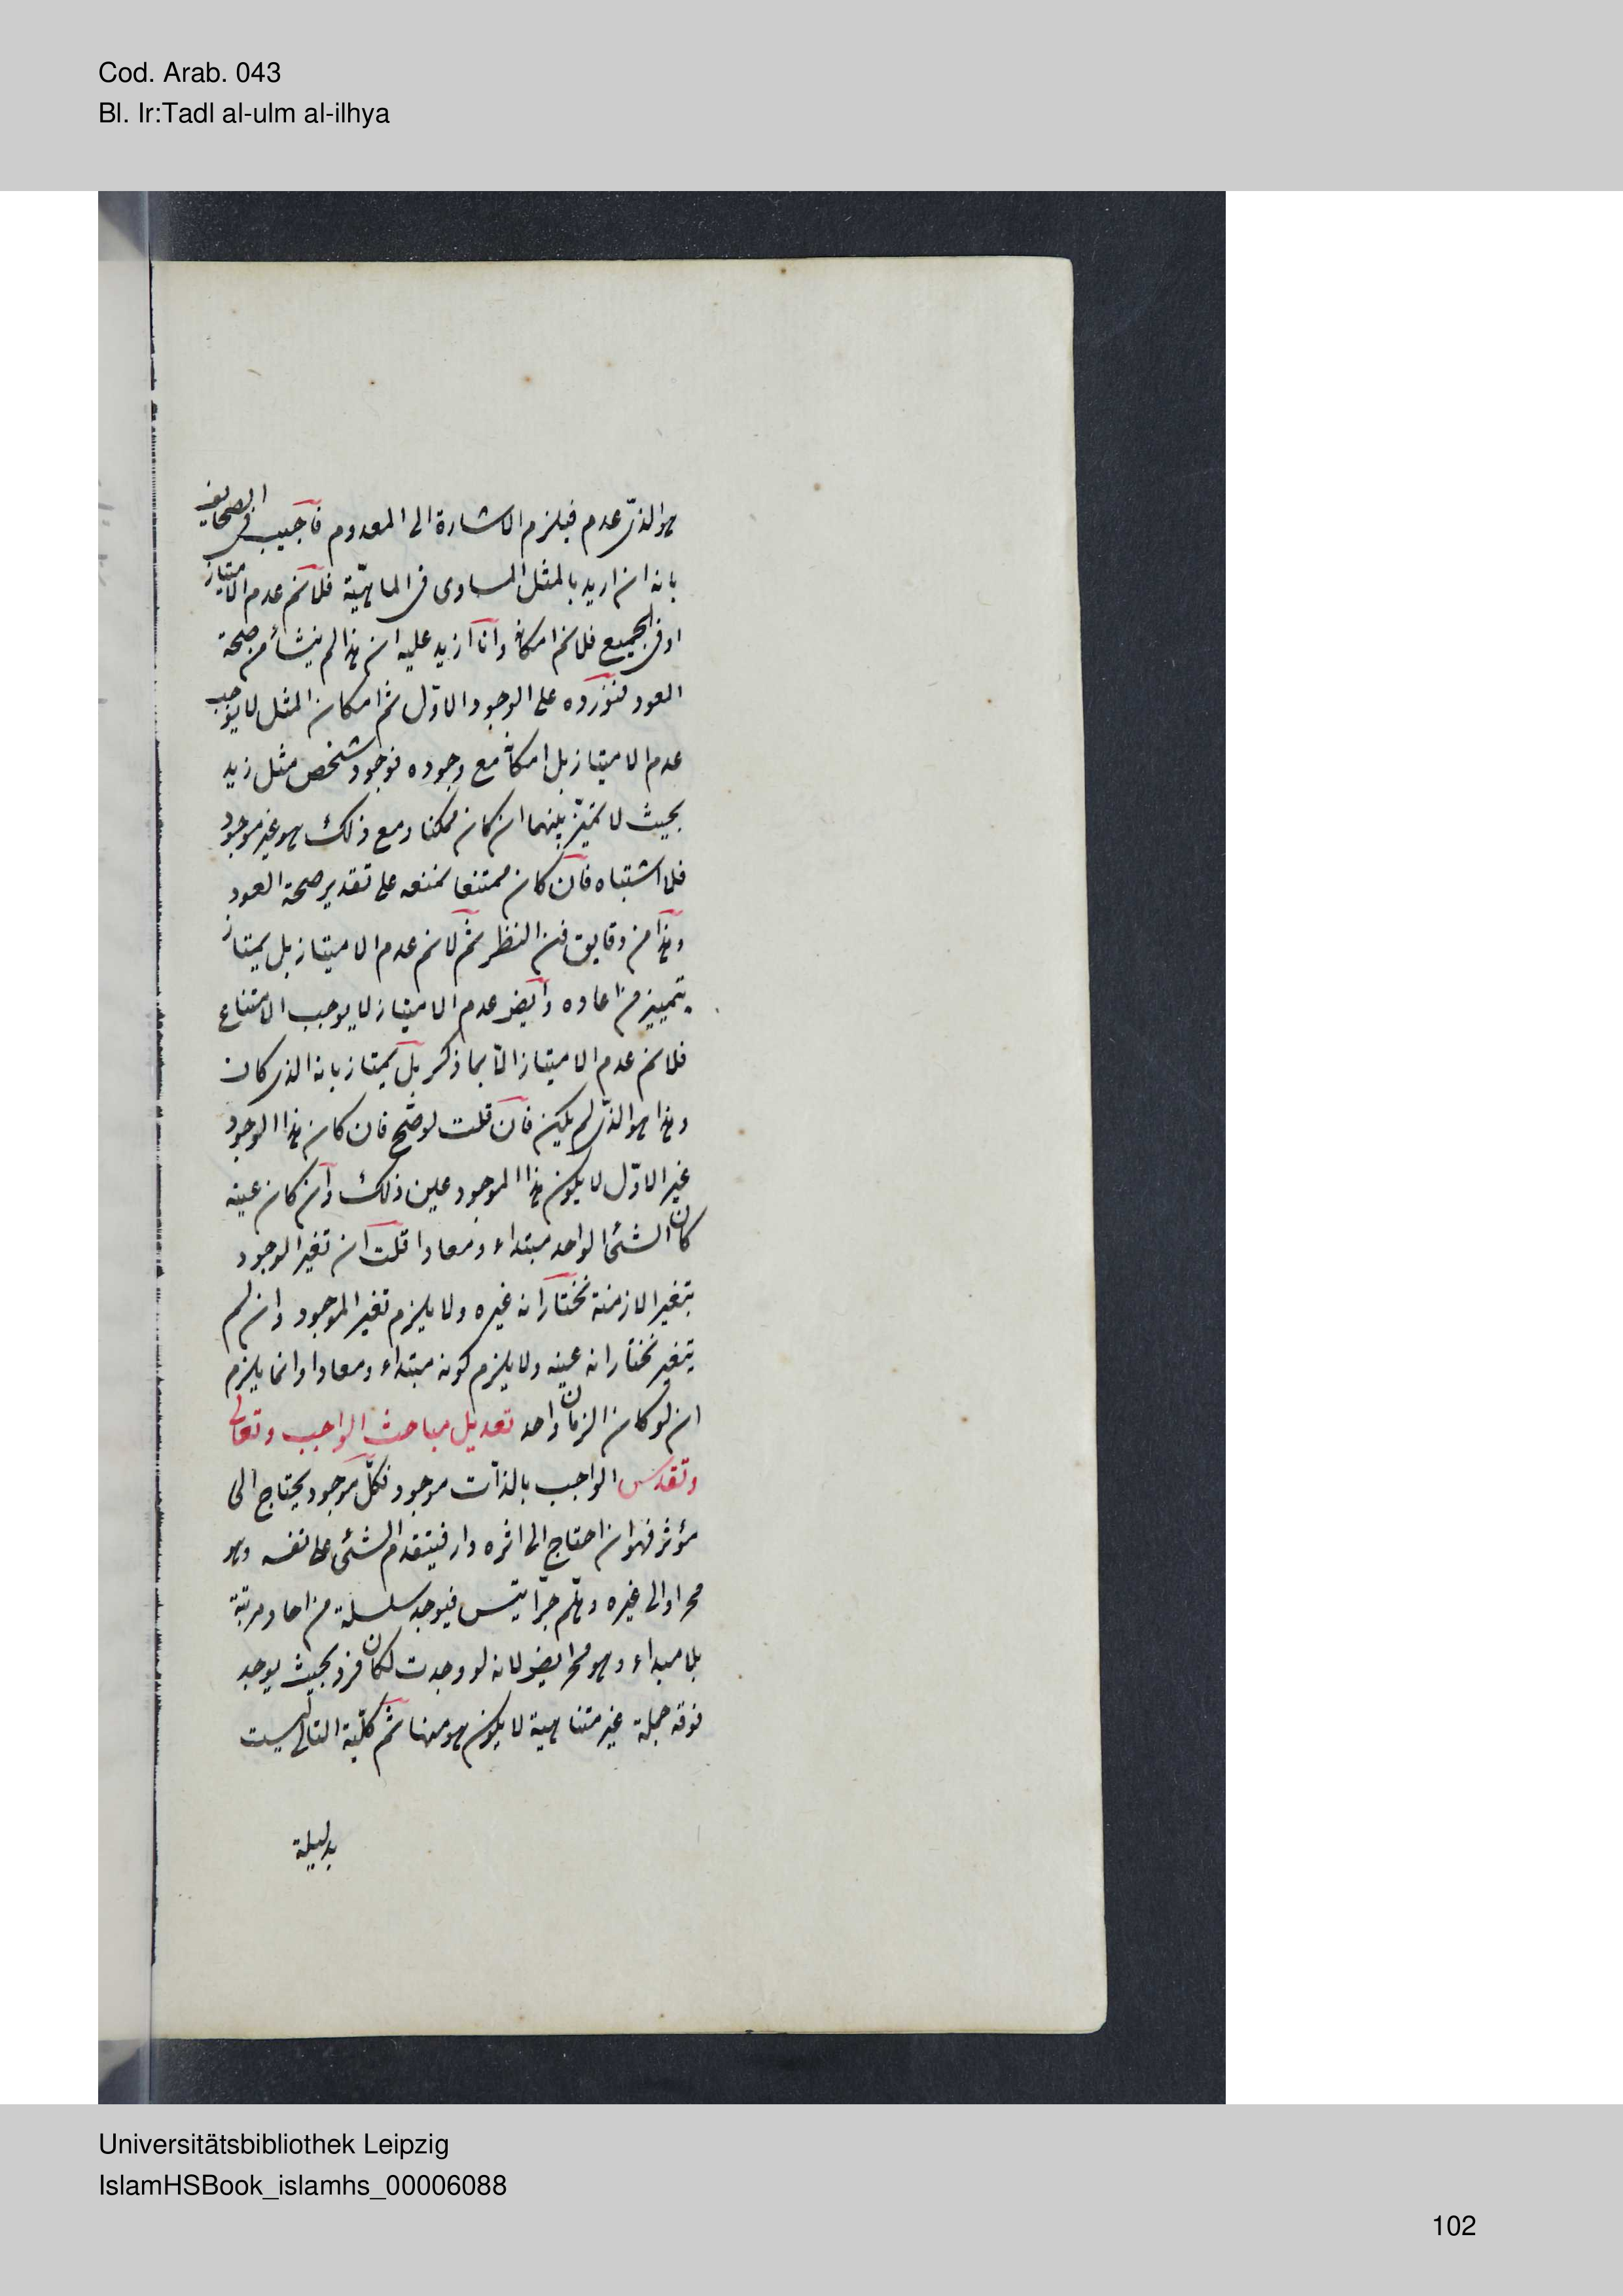 Cod. Arab. 043
Bl. Ir:Tadl al-ulm al-ilhya
هو الذى عدم فيلزم الاشارة الى المعدوم فاجيب فى الصحايف
بانه ان اريد بالمثل المساوى فى الماهيّة فلانم عدم الامتياز
او فى الجميع فلانم امكانه وانا ازيد عليه ان هذا لم ينشأ من صحة
العود فنورده على الوجود الاوّل ثم امكان المثل لا يوجب
عدم الامتياز بل امكانه مع وجوده فوجود شخص مثل زيد
بحيث لا تميّز بينهما ان كان ممكنا ومع ذلك هو غير موجود
فلا اشتباه فان كان ممتنعا نمنعه على تقدير صحة العود
وهذا من دقايق فن النظر ثم لانم عدم الامتياز بل يمتاز
بتمييز من اعاده وايض عدم الامتياز لا يوجب الامتناع
فلانم عدم الامتياز الّا بما ذكر بل يمتاز بانه الذى كان
وهذا هو الذى لم يكن فان قلت لو صّح فان كان هذا الوجود
غير الاوّل لا يكون هذا الموجود عين ذلك وان كان عينه
كان الشئ الواحد مبتداء ومعادا قلت ان تغير الوجود
بتغير الازمنة نختار انه غيره ولا يلزم تغير الموجود وان لم
يتغير نختار انه عينه ولا يلزم كونه مبتداء ومعادا وانما يلزم
ان لو كان الزمان واحد تعديل مباحث الواجب وتعالى
وتقدس الواجب بالذات موجود فكلّ موجود يحتاج الى
مؤثر فهو ان احتاج الى اثره دار فيتقدم الشئ على نفسه وهو
مح او الى غيره وهلّم جرّا يتس فيوجد سلسلة من احاد مرتبة
بلا مبداء وهو مح ايض لانه لو وجدت لكان فرد بحيث يوجد
فوقه جملة غير متناهية لا يكون هو منها ثم كلّية التالى ليست
بدليلة
Universitätsbibliothek Leipzig
IslamHSBook_islamhs_00006088
102